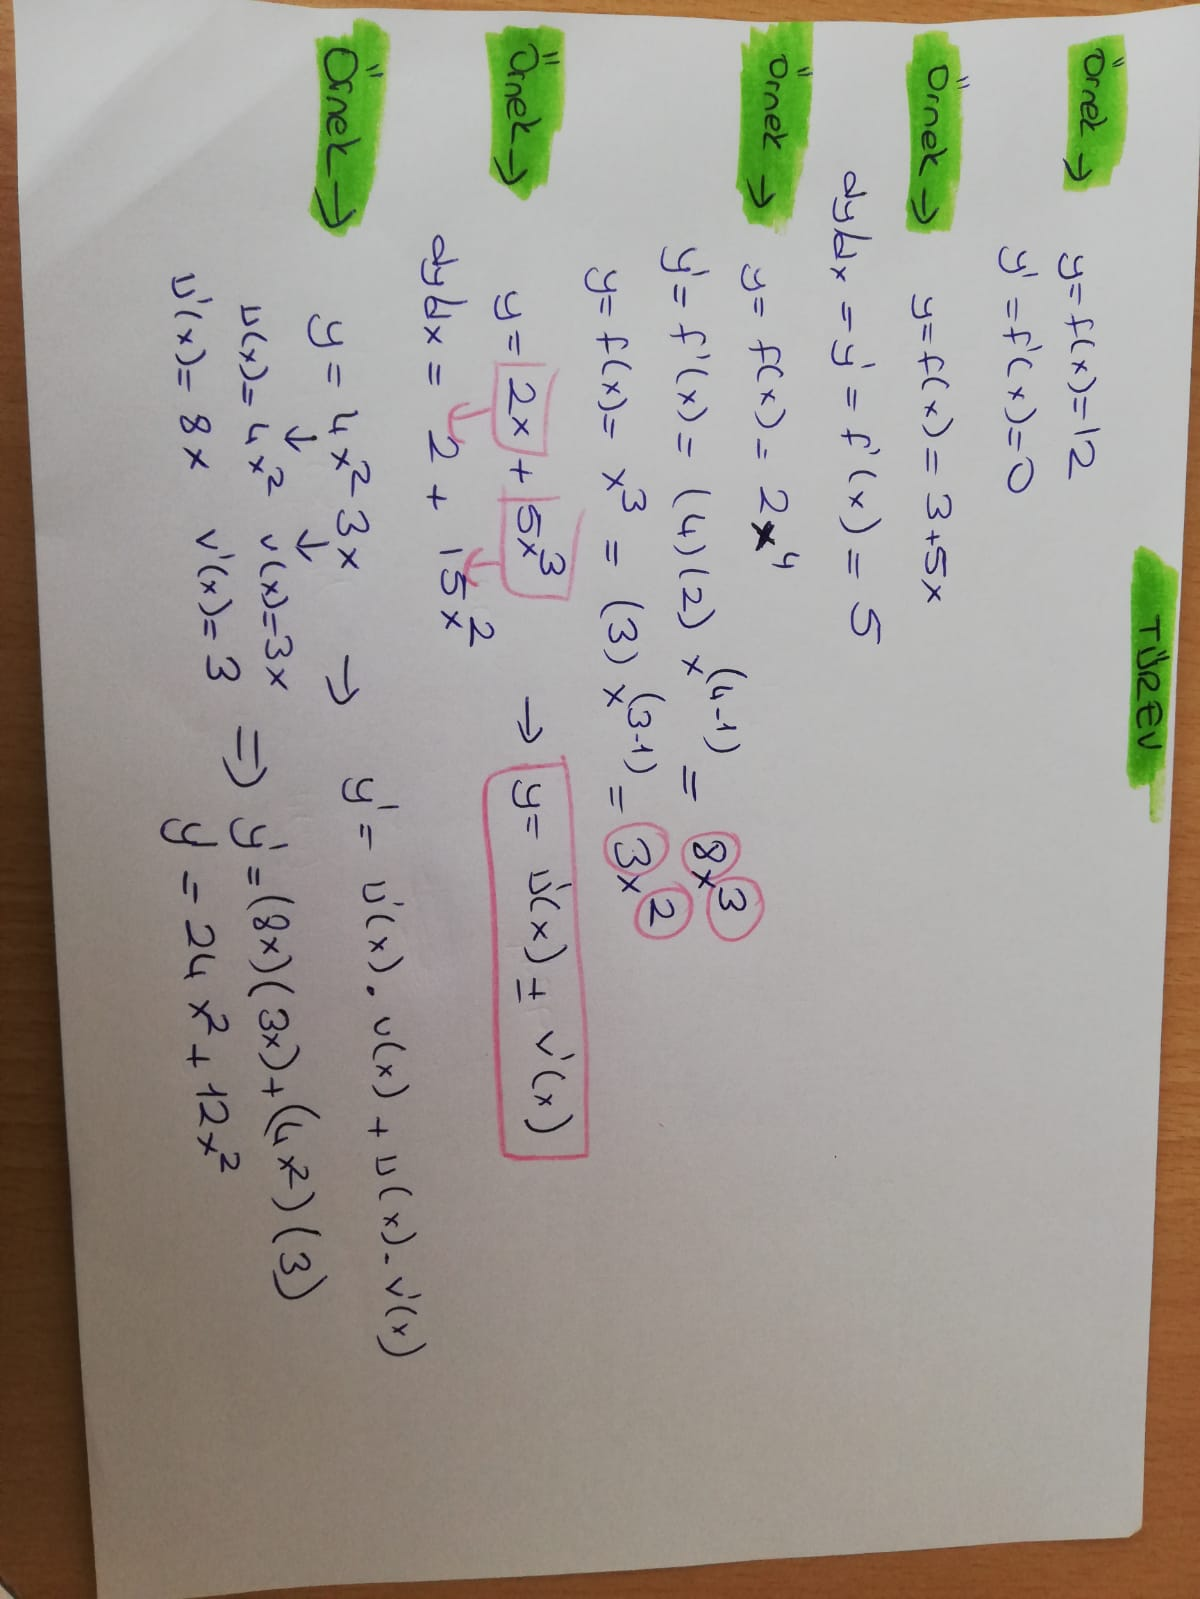 TÜREV
Örnek → y = f(x) = 12
y' = f'(x) = 0
Örnek → y = f(x) = 3+5x
dy/dx = y' = f'(x) = 5
Örnek → y = f(x) = 2x⁴
y' = f'(x) = (4)(2)x⁽⁴⁻¹⁾ = 8x³
y = f(x) = x³ = (3)x⁽³⁻¹⁾ = 3x²
Örnek → y = 2x + 5x³ → y = u'(x) ± v'(x)
dy/dx = 2 + 15x²
Örnek → y = 4x² - 3x → y' = u'(x) . v(x) + u(x) . v'(x)
u(x) = 4x² v(x) = 3x
u'(x) = 8x v'(x) = 3 ⇒ y' = (8x)(3x)+(4x²)(3)
y' = 24x² + 12x²